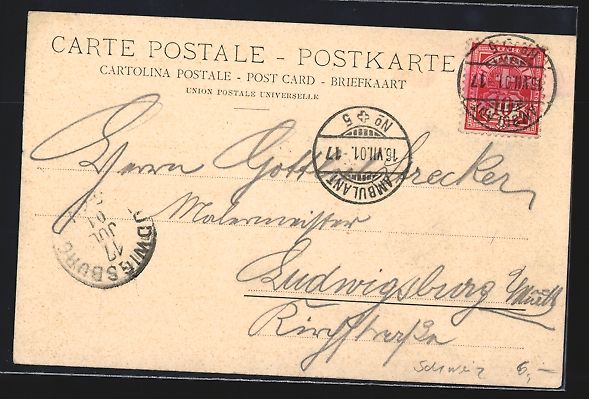 CARTE POSTALE - POSTKARTE
CARTOLINA POSTALE - POST CARD - BRIEFKAART
UNION POSTALE UNIVERSELLE
AMBULANT
16.VII.01.-17
No 5
Herrn Gottl.
Malermeister
Ludwigsburg
Kirchstraße
LUDWIGSBURG
17
JUL
01
Schweiz 6,-